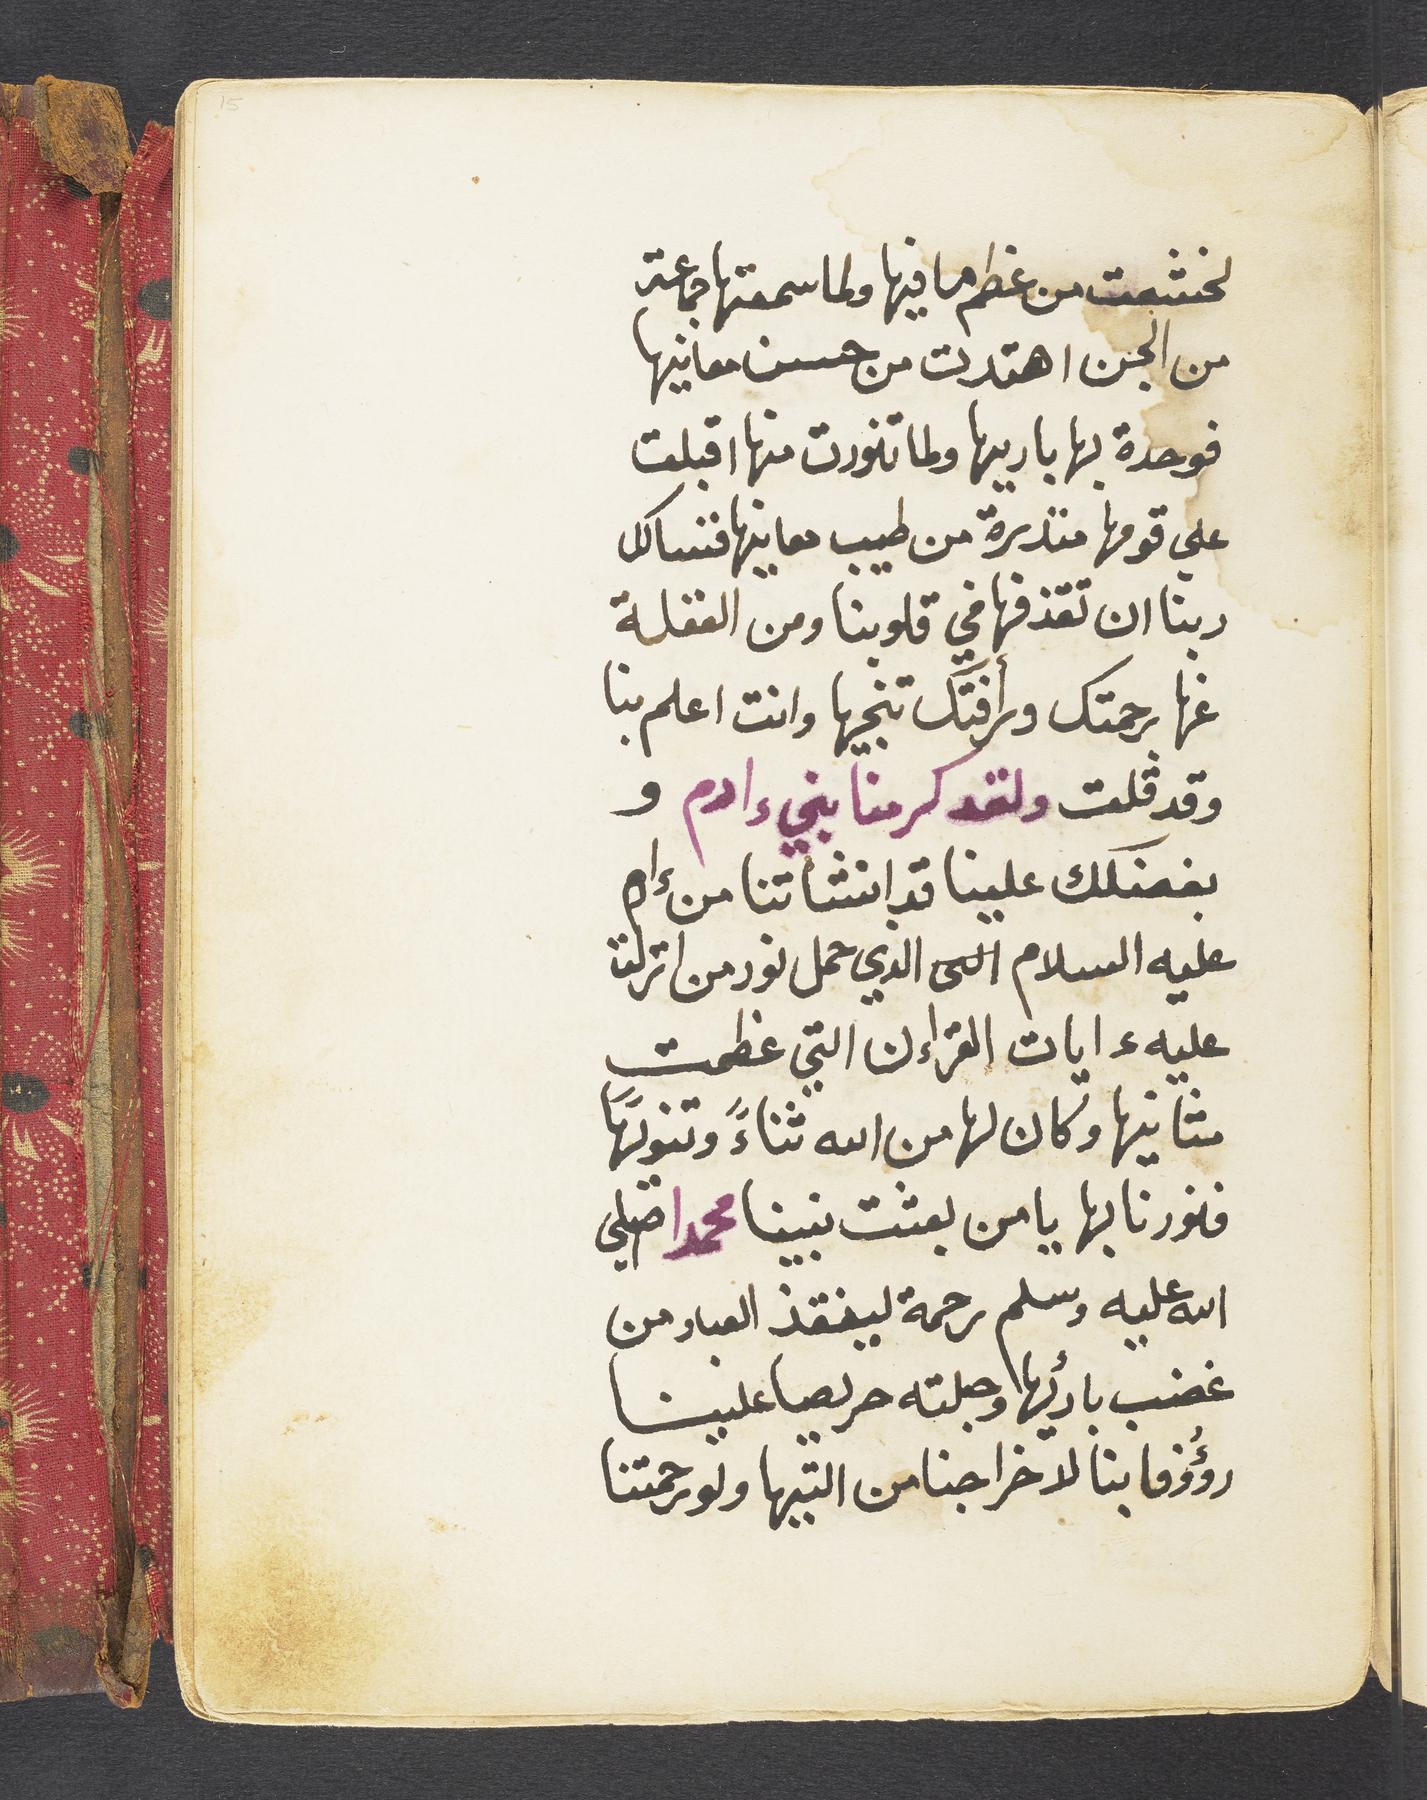 15
لخشعت من عظم ما فيها ولما سمعتها جماعة
من الجن اهتدت من حسن معانيها
فوحدة بها باريها ولما تنورت منها اقبلت
علي قومها منذرة من طيب معانيها فنسالك
ربنا ان تقذفها في قلوبنا ومن الغفلة
عنها برحمتك وبرأفتك تنجيها وانت اعلم بنا
وقد قلت ولقد كرمنا بني ءادم و
بفضلك علينا قد انشاتنا من ءادم
عليه السلام الذي حمل نور من انزلت
عليه ءايات القرءان التي عظمت
مثانيها وكان لها من الله ثناءً وتنويهًا
فنورنا بها يا من بعثت نبينا محمدا صلي
الله عليه وسلم رحمة لينقذ العباد من
غضب بارئها وجعلته حريصا علينا
روؤفا بنا لاخراجنا من التيها ولو رحمتنا